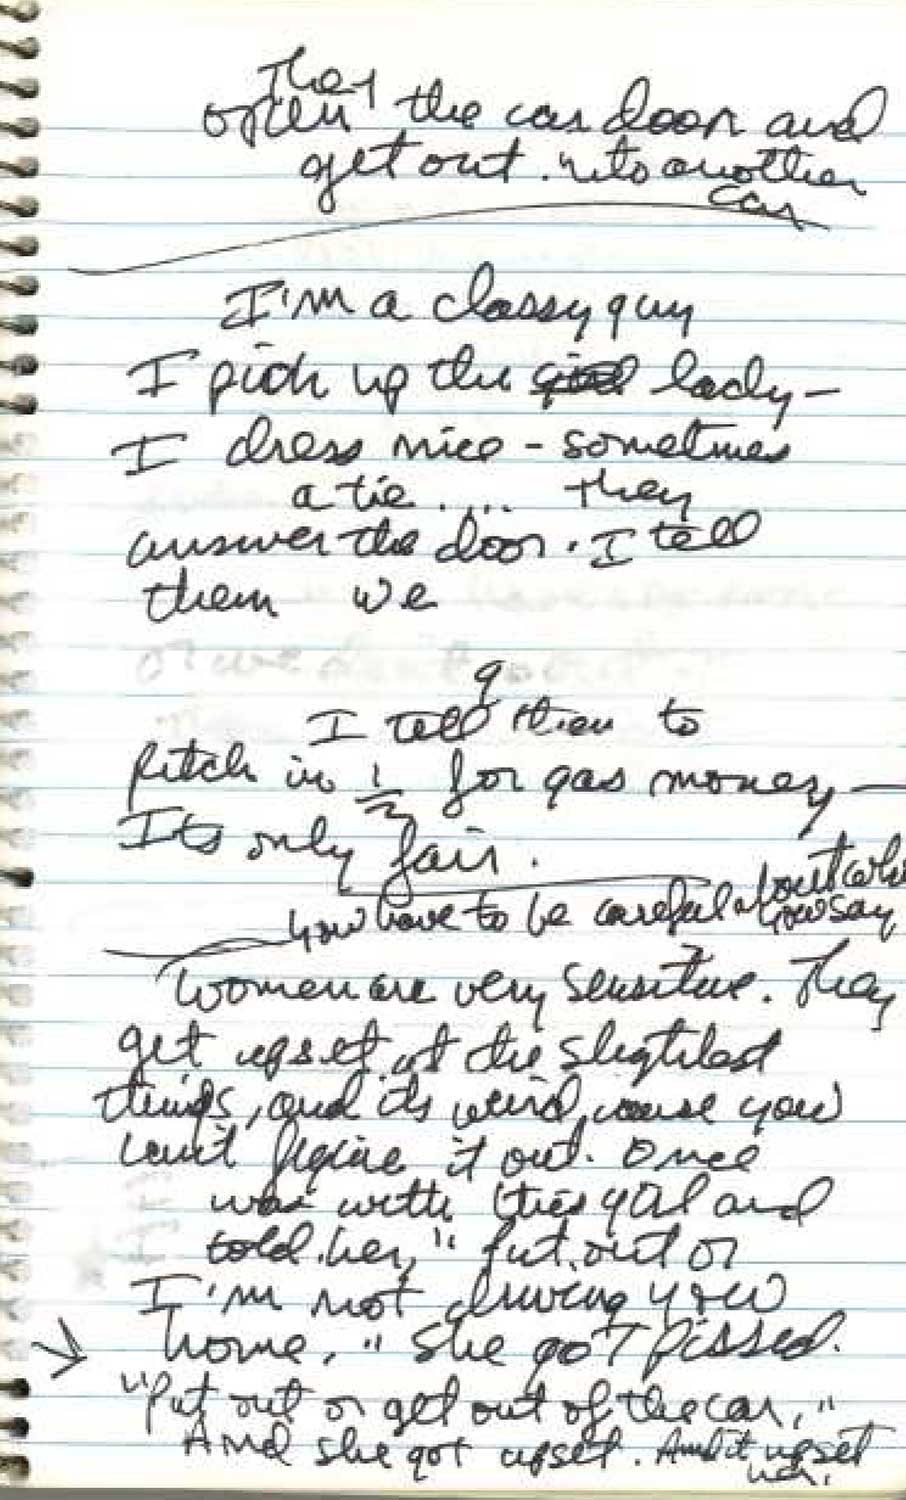 They
open the car door and
get out. into another
car
I'm a classy guy
I pick up the lady –
I dress nice – sometimes
a tie .... they
answer the door. I tell
them we
I tell them to
pitch in 1/2 for gas money —
Its only fair.
you have to be careful about
you say
Women are very sensitive. They
get upset at the slightest
things, and its weird, cause you
can't figure it out. Once
was with this girl and
I told her, "Put out or
I'm not driving you
home," She got pissed.
"Put out or get out of the car,"
And she got upset. And it upset
her.